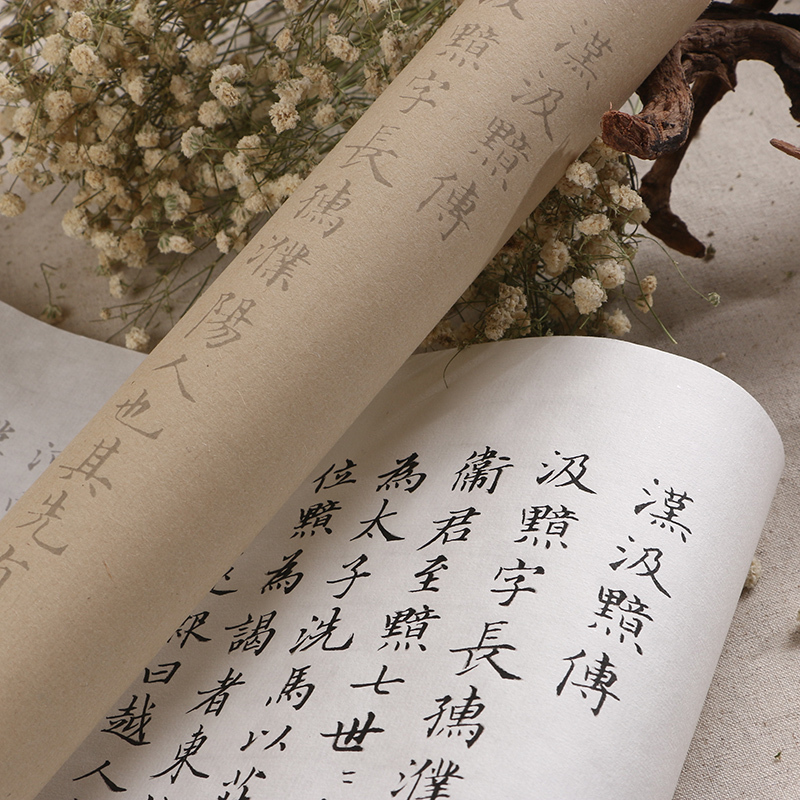 漢汲黯傳
汲黯字長孺濮陽人也其先有
漢汲黯傳
汲黯字長孺濮
衞君至黯七世〻
為太子洗馬以莊
位黯為謁者東
曰越人